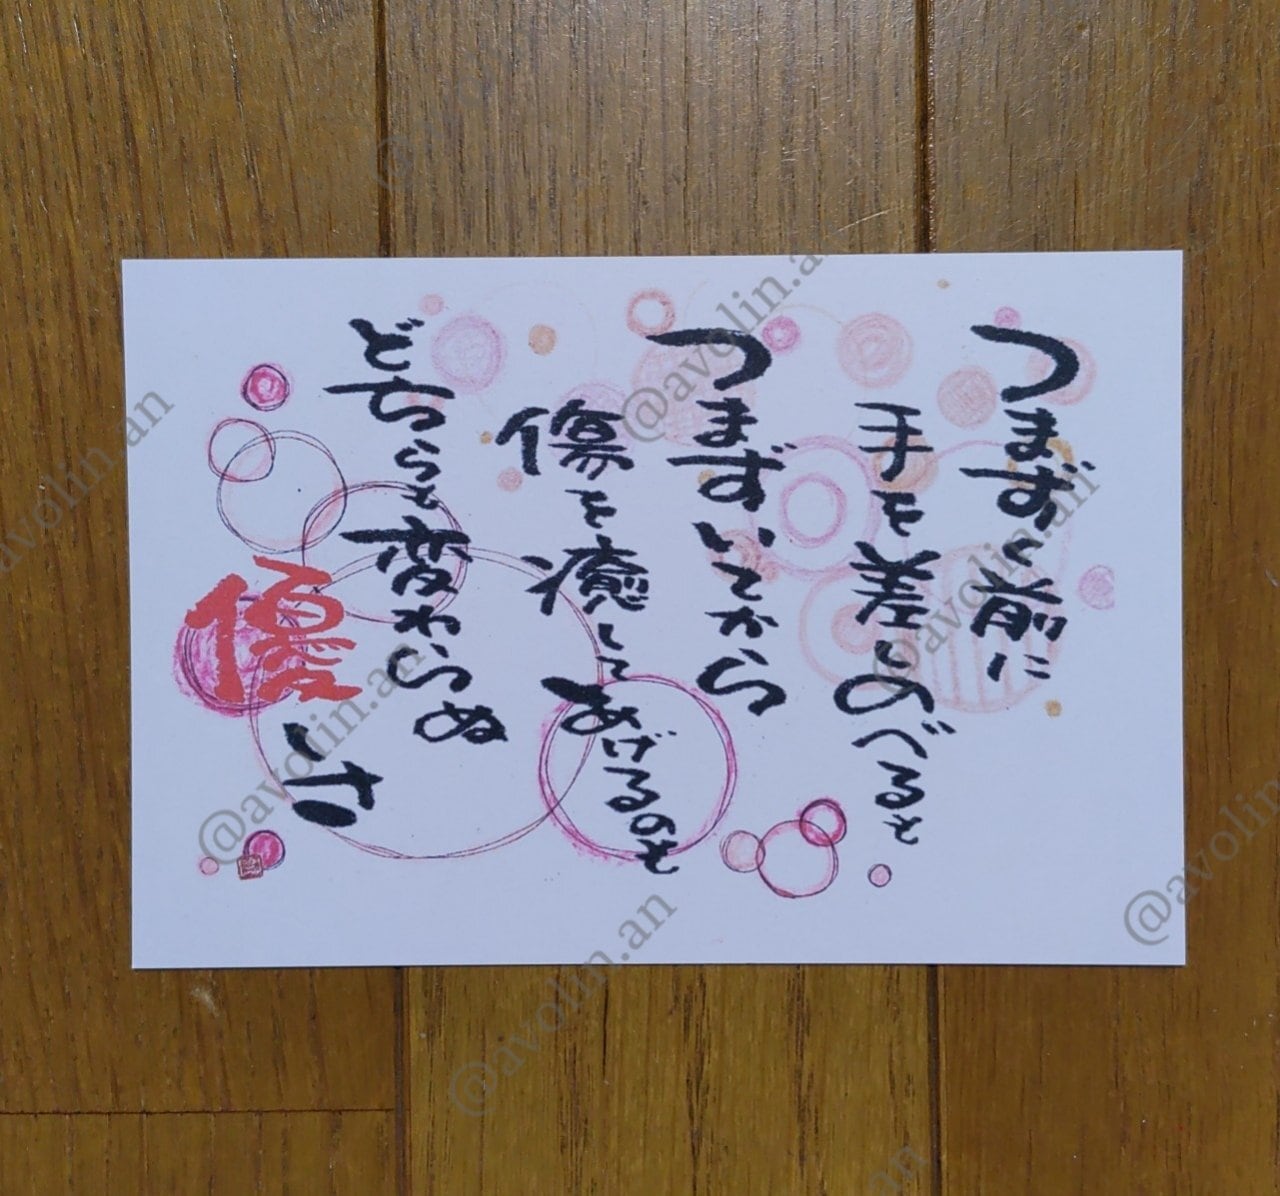 つまずく前に
手を差しのべると
つまずいてから
傷を癒してあげるのも
どちらも変わらぬ
優しさ
@avolin.an
@avolin.an
@avolin.an
@avolin.an
@avolin.an
@avolin.an